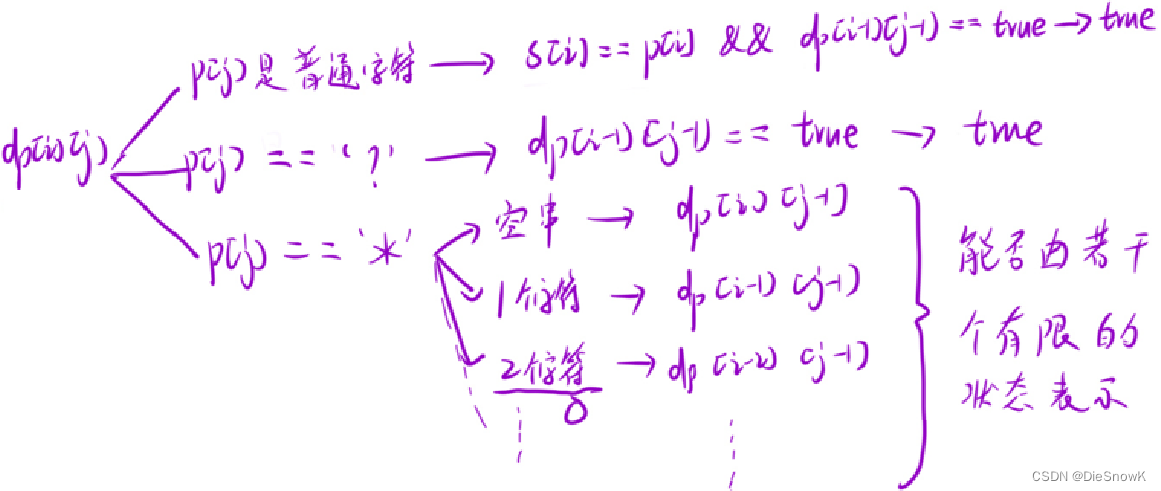 p[j]是普通字符 → s[i] == p[i] && dp[i-1][j-1] == true → true
dp[i][j]
p[j] == '?' → dp[i-1][j-1] == true → true
p[j] == '*'
空串 → dp[i][j-1]
1个字符 → dp[i-1][j-1]
2个字符 → dp[i-2][j-1]
能否由若干
个有限的
状态表示
CSDN @DieSnowK